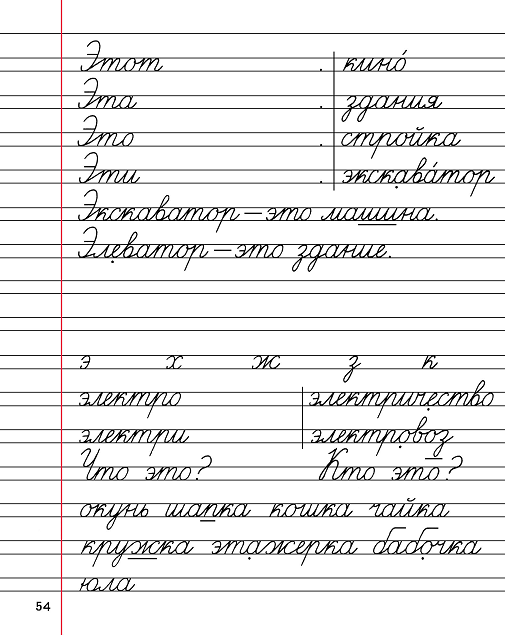 Этот . кино́
Эта . здания
Это . стройка
Эти . экскава́тор
Экскаватор – это машина.
Элеватор – это здание.
э х ж з к
электро электричество
электри электровоз
Что это? Кто это?
окунь шапка кошка чайка
кружка этажерка бабочка
юла
54